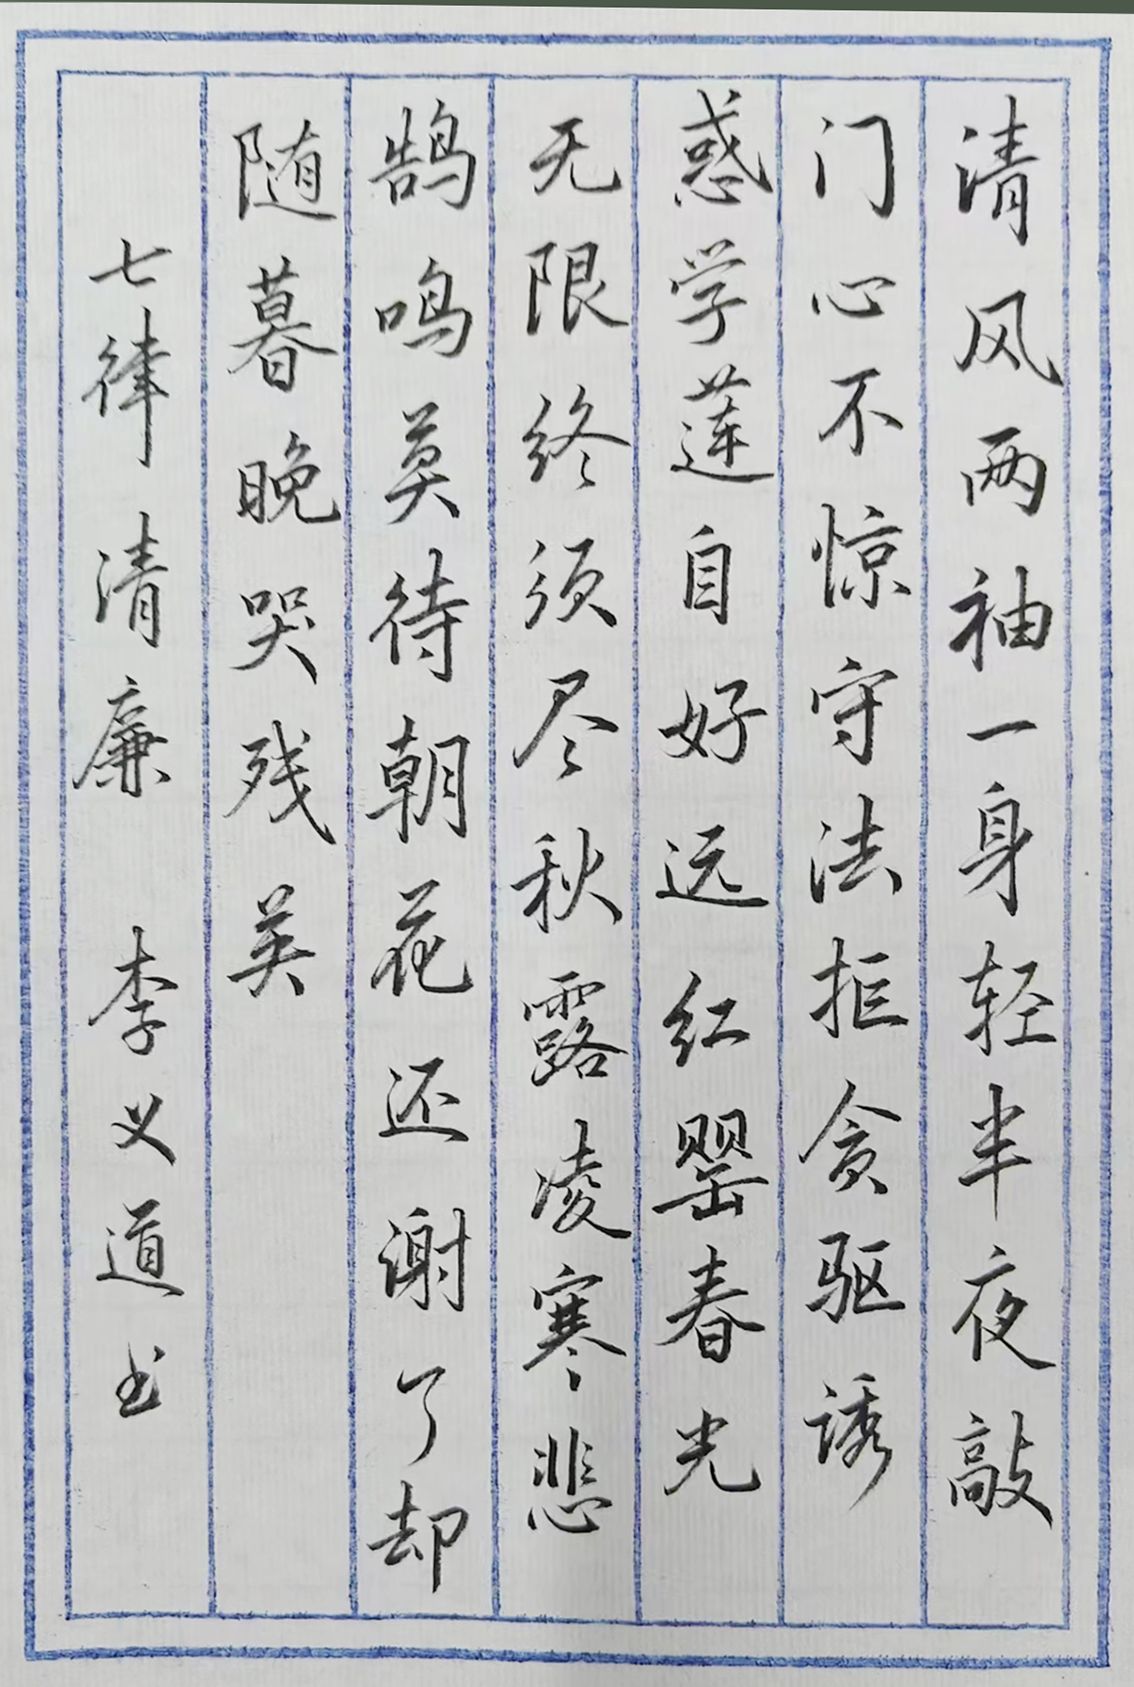 清风两袖一身轻半夜敲
门心不惊守法拒贪驱诱
惑学莲自好远红罂春光
无限终须尽秋露凌寒悲
鹄鸣莫待朝花还谢了却
随暮晚哭残英
七律清廉 李义道书